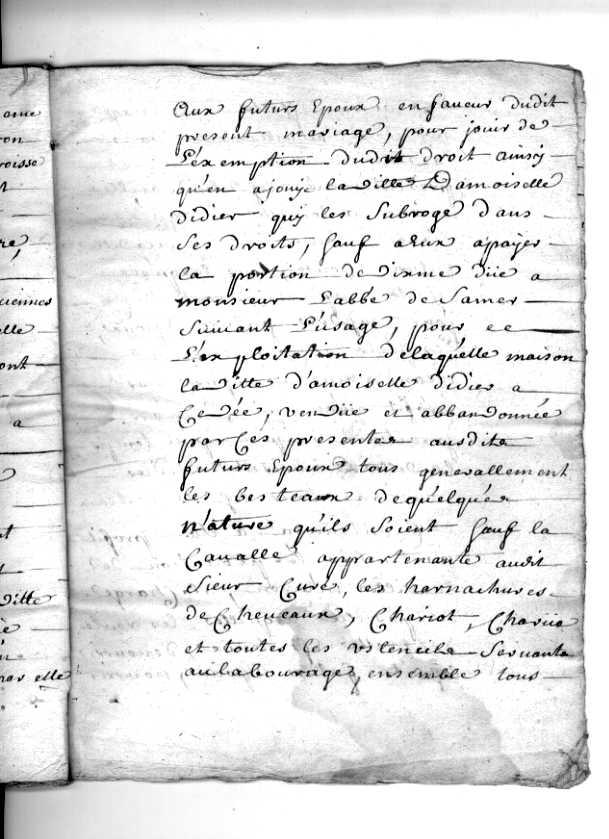 ame
ron
roisse
t
re,
ciennes
elle
ont
a
t
ditte
n
par elle
Aux futurs Epoux en faveur dudit
present mariage, pour jouir de
L'éxemption dudit droit ainsÿ
qu'en a jouÿe laditte Damoiselle
didier quÿ les Subroge dans
Ses droits, Sauf a Eux a payer
la portion de dixme düe a
monsieur L'abbé de Samer
Suivant L'úsage, pour
L'exploitation delaquélle maison
laditte d'amoiselle didier a
Cedée, vendüe et abbandonnée
par Ces presentes ausdits
futurs Epoux tous generallement
les besteaux dequélque
n'ature qu'ils soient Sauf la
Cavalle appartenante audit
Sieur Curé, les harnachures
de Cheveaux, Chariot, Charüe
et toutes les vstencils Servants
au labourage, ensemble tous